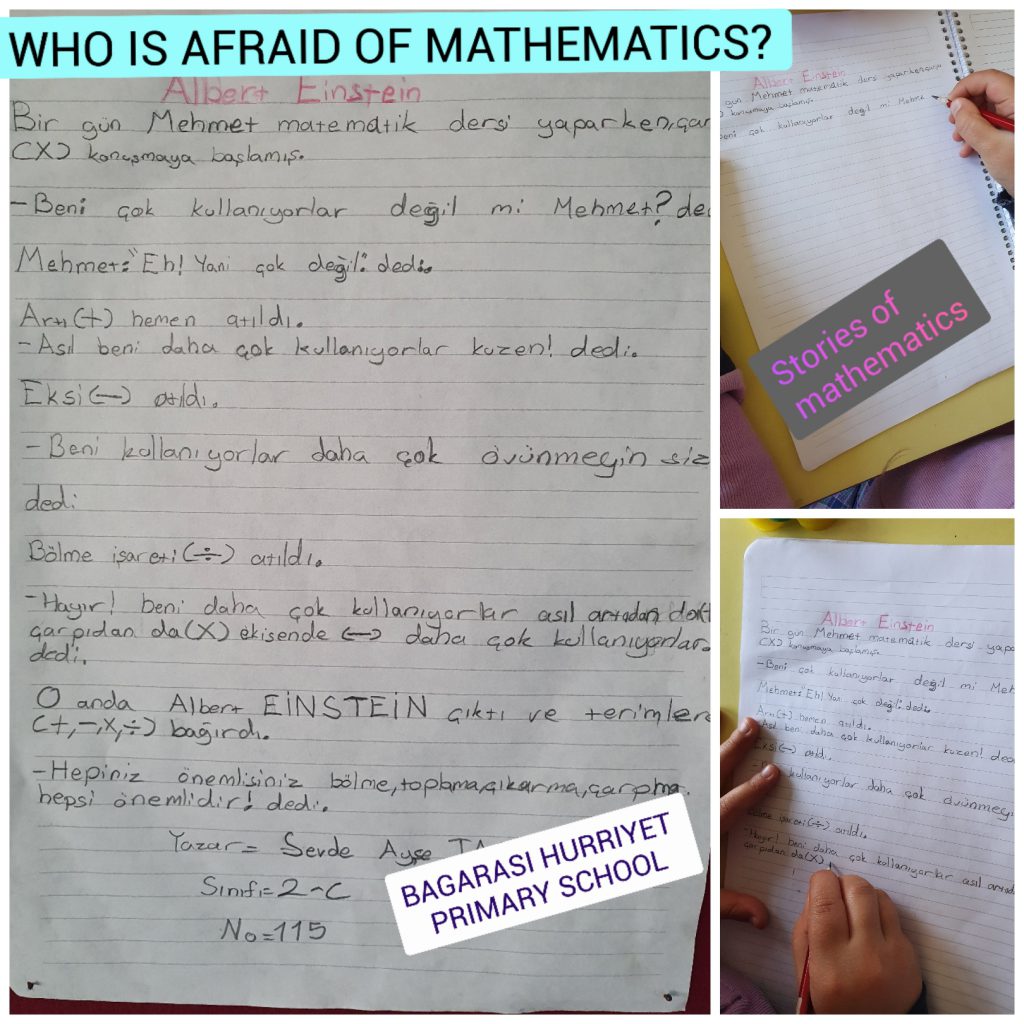 WHO IS AFRAID OF MATHEMATICS?
Albert Einstein
Bir gün Mehmet matematik dersi yaparken,çar
(X) konuşmaya başlamış.
-Beni çok kullanıyorlar değil mi Mehmet? de
Mehmet:"Eh! Yani çok değil." dedi.
Artı(+) hemen atıldı.
-Asıl beni daha çok kullanıyorlar kuzen! dedi.
Eksi(-) atıldı.
-Beni kullanıyorlar daha çok övünmeyin siz
dedi
Bölme işareti(÷) atıldı.
-Hayır! beni daha çok kullanıyorlar asıl artıdan
çarpıdan da(X) ekisende (-) daha çok kullanıyorlar.
dedi.
O anda Albert EİNSTEİN çıktı ve terimlere
(+,-,X,÷) bağırdı.
-Hepiniz önemlisiniz bölme,toplama,çıkarma,çarpma.
hepsi önemlidir! dedi.
Yazar= Sevde Ayşe
Sınıfı=2-C
No=115
BAGARASI HURRIYET
PRIMARY SCHOOL
Albert Einstein
gün Mehmet matematik dersi yaparken,çarpı
konuşmaya başlamış.
Beni çok kullanıyorlar değil mi Mehme
Stories of
mathematics
Albert Einstein
Bir gün Mehmet matematik dersi yapa
(X) konuşmaya başlamış.
-Beni çok kullanıyorlar değil mi Meh
Mehmet:"Eh! Yani çok değil." dedi.
Artı(+) hemen atıldı.
Asıl beni daha çok kullanıyorlar kuzen! ded
Eksi(-) atıldı.
kullanıyorlar daha çok övünmeyi
işareti(÷) atıldı.
-Hayır! beni daha çok kullanıyorlar asıl
çarpıdan da(X)